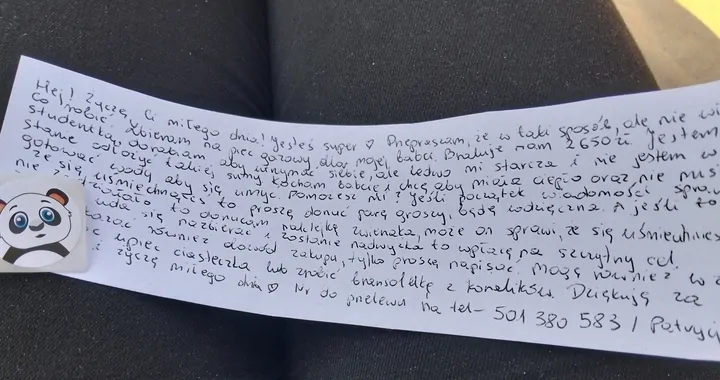 Hej! Życzę Ci miłego dnia! Jesteś super ♡ Przepraszam, że w taki sposób, ale nie wi
co robić. Zbieram na piec gazowy dla mojej babci. Brakuje nam 2650zł. Jestem
studentką, dorabiam, aby utrzymać siebie, ale ledwo mi starcza i nie jestem w
stanie odłożyć takiej sumy. Kocham babcię i chcę aby miała ciepło oraz nie mus
gotować wody aby się umyć. Pomożesz mi? Jeśli początek wiadomości spra
że się uśmiechnąłeś to proszę donuć parę groszy, będę wdzięczna. A jeśli to
nie to donucam naklejkę zwierzaka, może on sprawi, że się uśmiechniesz
uda się nazbierać i zostanie nadwyżka to wpłacę na szczytny cel.
również dowód zakupu, tylko proszę napisać. Mogę również w z
upiec ciasteczka lub zrobić bransoletkę z koralików. Dziękuję za
i życzę miłego dnia ♡ Nr do przelewu na tel- 501 380 583 / Patryc